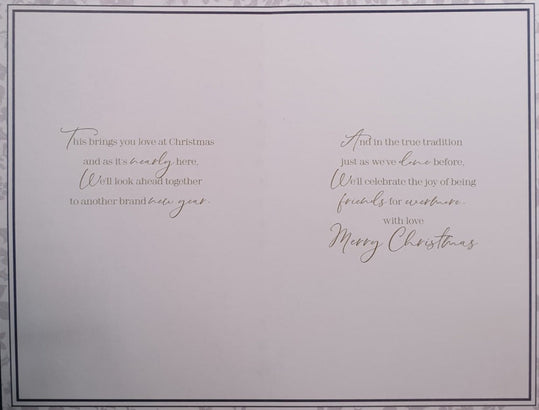 This brings you love at Christmas
and as it's nearly here,
We'll look ahead together
to another brand new year.
And in the true tradition
just as we've done before,
We'll celebrate the joy of being
friends for evermore.
with love
Merry Christmas